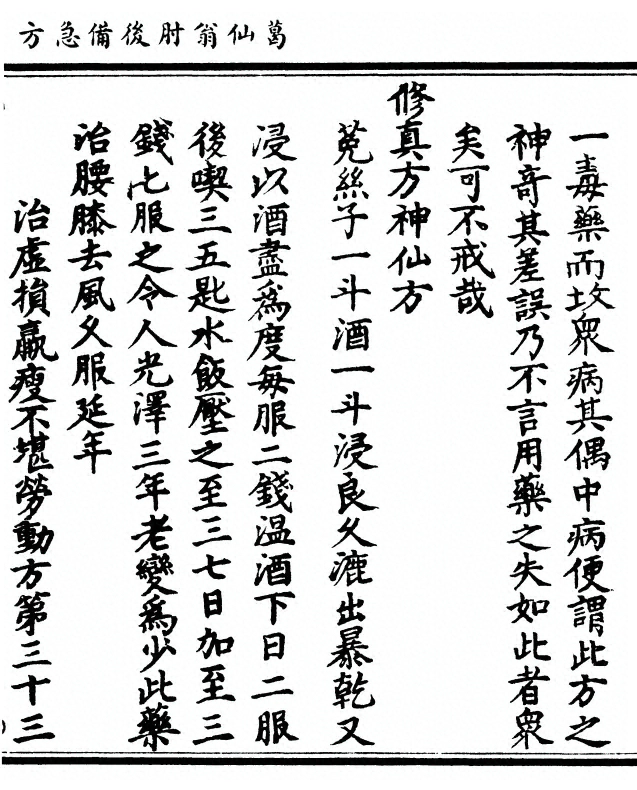 葛仙翁肘後備急方
一毒藥而攻衆病其偶中病便謂此方之
神奇其差誤乃不言用藥之失如此者衆
矣可不戒哉
修真方神仙方
菟絲子一斗酒一斗浸良久漉出暴乾又
浸以酒盡為度每服二錢温酒下日二服
後喫三五匙水飯壓之至三七日加至三
錢匕服之令人光澤三年老變為少此藥
治腰膝去風久服延年
治虛損羸瘦不堪勞動方第三十三